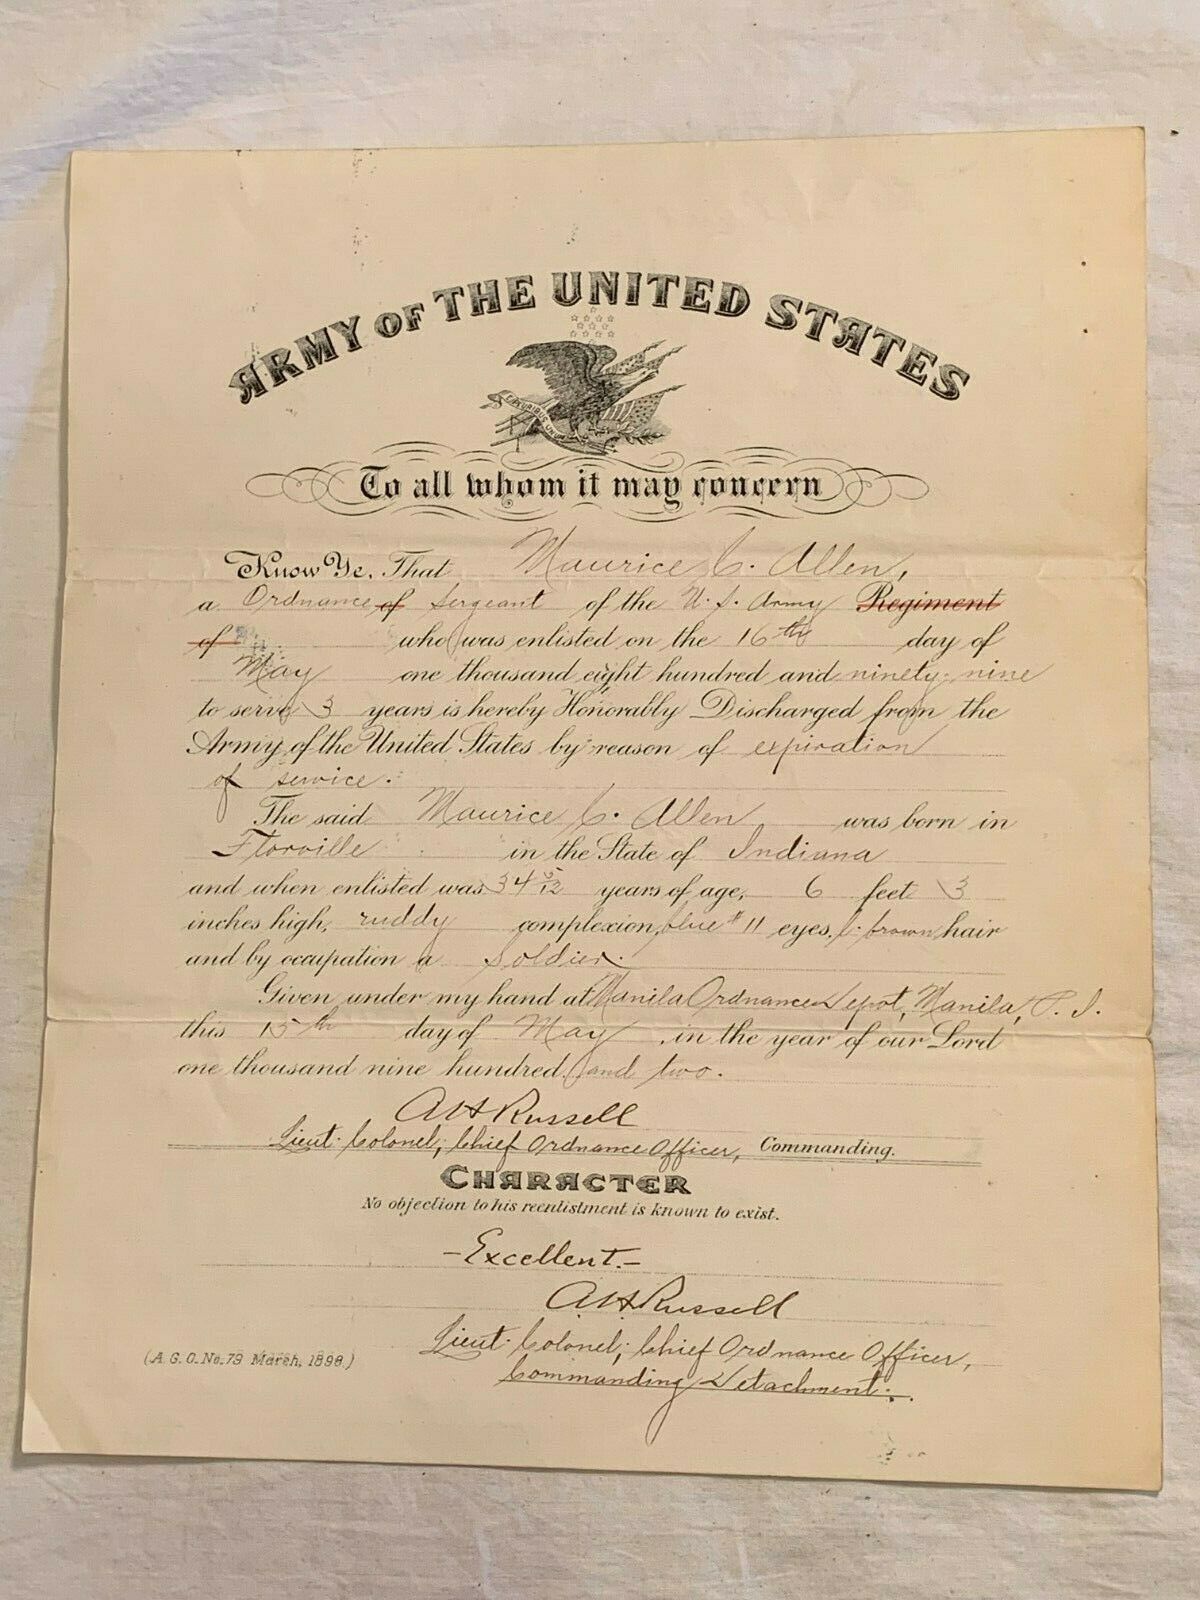 ARMY OF THE UNITED STATES
E PLURIBUS UNUM
To all whom it may concern
Know Ye, That Maurice C. Allen,
a Ordnance of Sergeant of the U.S. Army Regiment
of who was enlisted on the 16th day of
May one thousand eight hundred and ninety-nine
to serve 3 years is hereby Honorably Discharged from the
Army of the United States by reason of expiration
of service.
The said Maurice C. Allen was born in
in the State of Indiana
and when enlisted was 34 5/12 years of age, 6 feet 3
inches high, ruddy complexion, blue #11 eyes, l. brown hair
and by occupation a Soldier.
Given under my hand at Manila Ordnance Depot, Manila, P.I.
this 15th day of May, in the year of our Lord
one thousand nine hundred and two.
A H Russell
Lieut. Colonel, Chief Ordnance Officer, Commanding.
CHARACTER
No objection to his reenlistment is known to exist.
-Excellent.-
A.H. Russell
Lieut. Colonel, Chief Ordnance Officer,
Commanding Detachment.
(A. G. O. No. 79 March, 1898.)